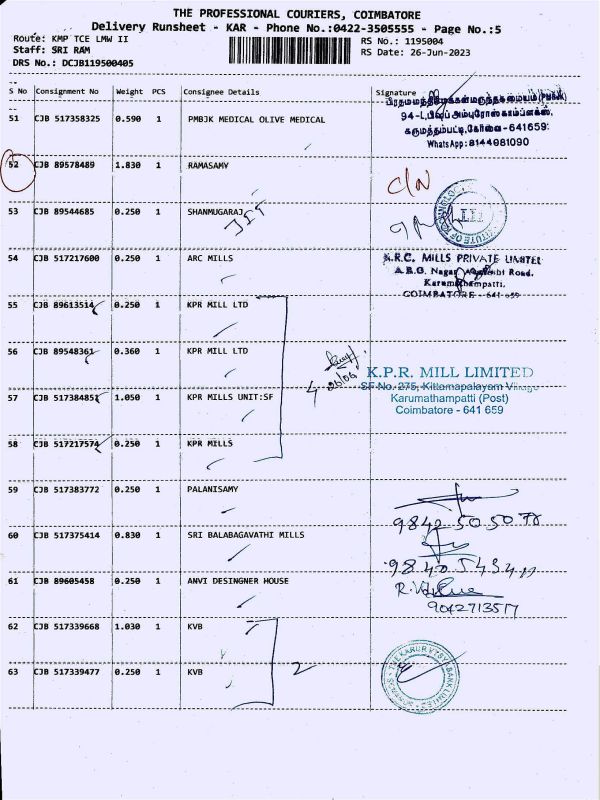 THE PROFESSIONAL COURIERS, COIMBATORE
Delivery Runsheet - KAR - Phone No.:0422-3505555 - Page No.:5
Route: KMP TCE LMW II
RS No.: 1195004
Staff: SRI RAM
RS Date: 26-Jun-2023
DRS No.: DCJB119500405
S No Consignment No Weight PCS Consignee Details Signature
51 CJB 517358325 0.590 1 PMBJK MEDICAL OLIVE MEDICAL
94-L,
கருமத்தம்பட்டி, கோவை - 641659.
WhatsApp: 8144981090
52 CJB 89578489 1.830 1 RAMASAMY
C/N
53 CJB 89544685 0.250 1 SHANMUGARAJ
54 CJB 517217600 0.250 1 ARC MILLS
A.R.C. MILLS PRIVATE LIMITED
A.R.C. Nagar, Road,
Karumathampatti,
COIMBATORE - 641 659
55 CJB 89613514 0.250 1 KPR MILL LTD
56 CJB 89548361 0.360 1 KPR MILL LTD
4 26/06
K.P.R. MILL LIMITED
SF No. 275, Kittampalayam Village
57 CJB 517384851 1.050 1 KPR MILLS UNIT:SF
Karumathampatti (Post)
Coimbatore - 641 659
58 CJB 517217574 0.250 1 KPR MILLS
59 CJB 517383772 0.250 1 PALANISAMY
9842505078
60 CJB 517375414 0.830 1 SRI BALABAGAVATHI MILLS
61 CJB 89605458 0.250 1 ANVI DESINGNER HOUSE
9042713517
62 CJB 517339668 1.030 1 KVB
2
63 CJB 517339477 0.250 1 KVB
THE KARUR VYSYA BANK LIMITED